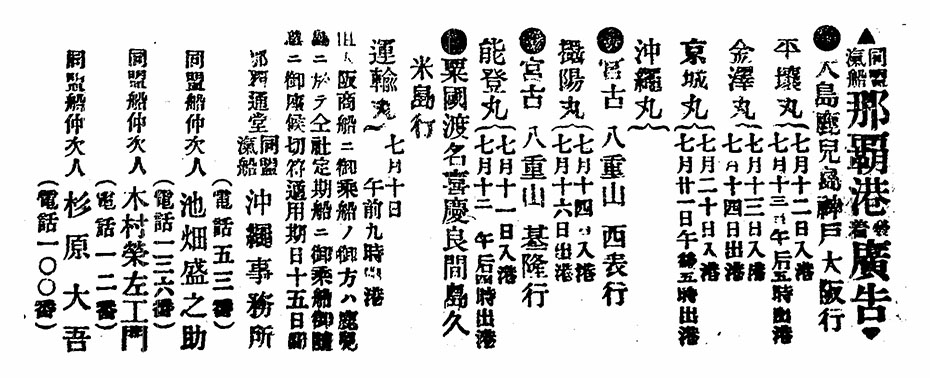 ▲同盟汽船那覇港発着廣告▼
●大島鹿兒島神戸大阪行
平壤丸 七月十二日入港 七月十三日午后五時出港
金澤丸 七月十三日入港 七月十四日出港
京城丸 七月二十日入港 七月廿一日午後五時出港
沖繩丸
●宮古 八重山 西表行
攝陽丸 七月十四日入港 七月十六日出港
●宮古 八重山 基隆行
能登丸 七月十一日入港 七月十二 午后四時出港
●粟國渡名喜慶良間島久
米島行
運輸丸 七月十日 午前九時出港
阪商船ニ御乘船ノ御方ハ鹿兒
島ニ於テ仝社定期船ニ御乘船御
ニ御座候切符通用期日十五日間
那覇通堂 同盟汽船 沖繩事務所
(電話五三番)
同盟船仲次人 池畑盛之助
(電話一三六番)
同盟船仲次人 木村榮左工門
(電話一二番)
同盟船仲次人 杉原大吾
(電話一〇〇番)